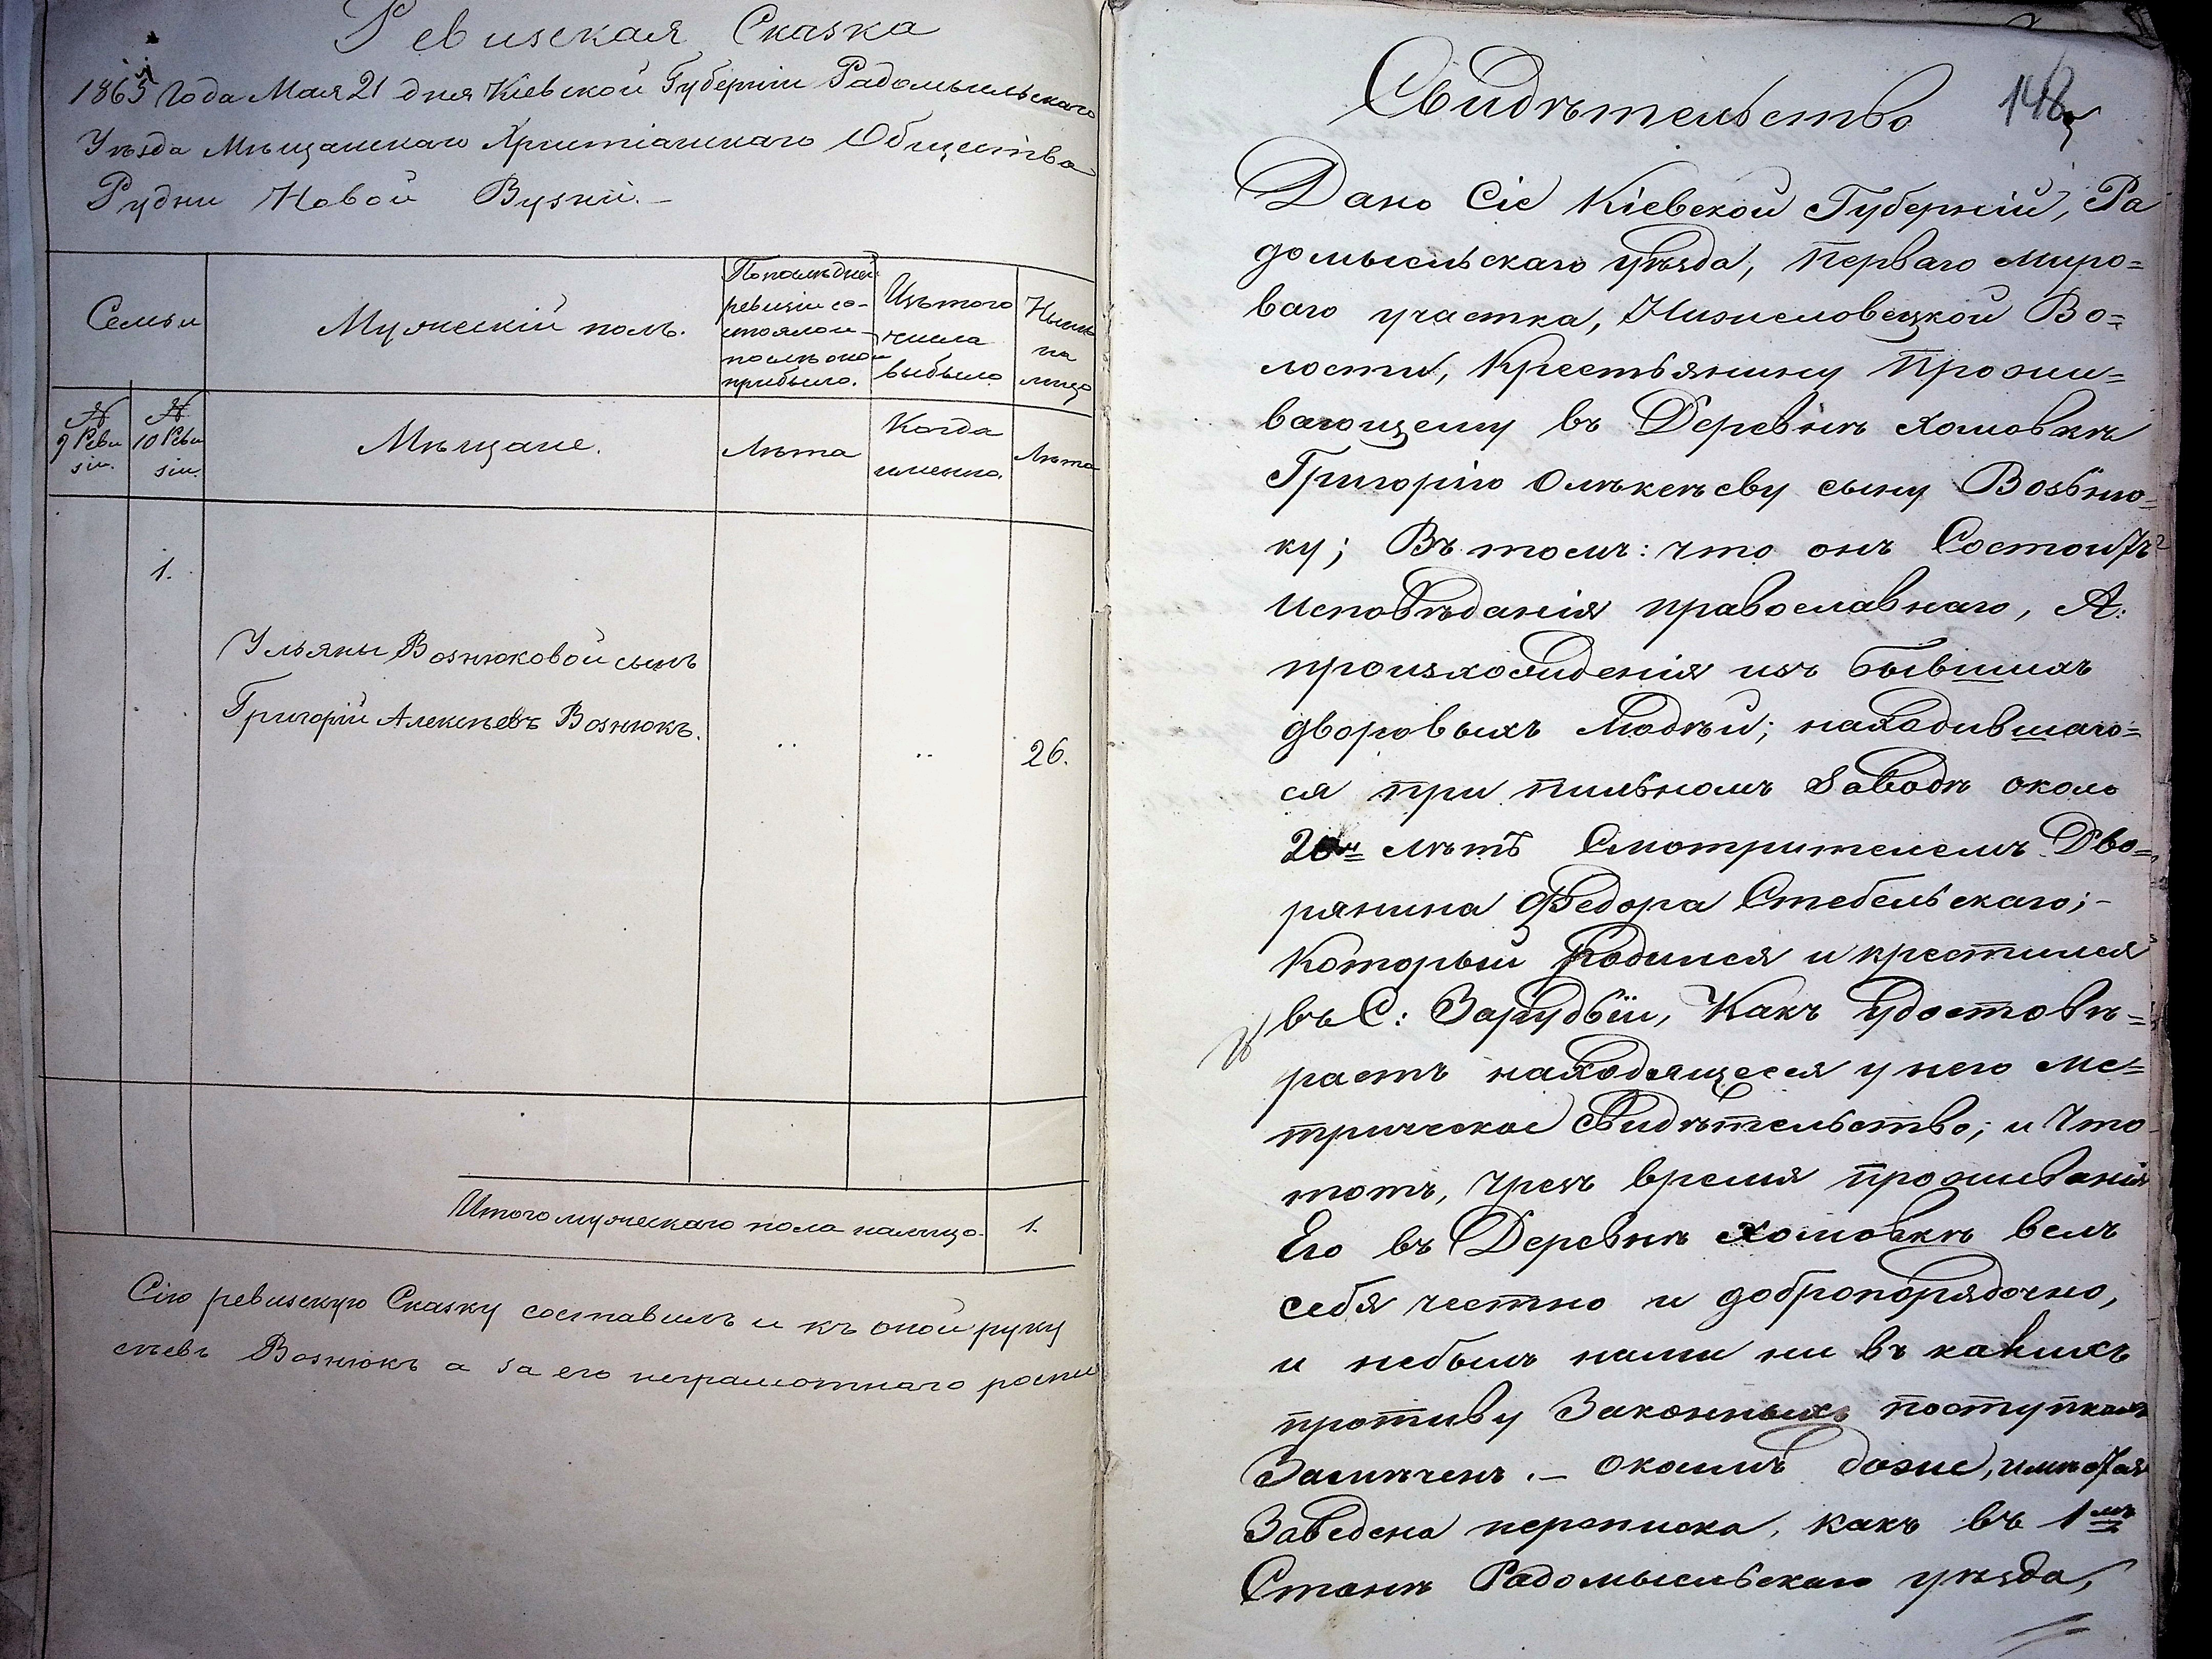 Ревизская Сказка
1865 Года Мая 21 дня Кіевской Губерніи Радомысльскаго
Уѣзда Мѣщанскаго Христіанскаго Общества
Рудни Новой Бузкій.
Семьи
Мужескій полъ.
По послѣдней
ревизіи со-
стояло и
послѣ оной
прибыло.
Изъ того
числа
выбыло
Нынѣ
на
лицо
№
9 Реви
зіи.
№
10 Реви
зіи.
Мѣщане.
Лѣта
Когда
именно.
Лѣта
1.
Ульяны Вознюковой сынъ
Григорій Алексѣевъ Вознюкъ.
26.
Итого мужескаго пола налицо.
1.
Сію ревизскую Сказку составилъ и къ оной руку
сѣевъ Вознюкъ а за его неграмотнаго роспи
148
Свидѣтельство
Дано Сіе Кіевской Губерніи, Ра
домысльскаго уѣзда, перваго миро=
ваго участка, Во=
лости, Крестьянину Прожи=
вающему въ Деревнѣ Хомовкѣ
Григорію сыну Возьню=
ку; Въ томъ: что онъ Состоитъ
Исповѣданія православнаго, А:
происхожденія изъ бывшихъ
дворовыхъ людѣй; находившаго=
ся при пильномъ Заводѣ около
20и лѣтъ Смотрителемъ Дво=
рянина Федора Стебельскаго;-
Который родился и крестился
въ С: Зарудьїи, Какъ удостовѣ=
раетъ находящееся у него ме=
трическое Свидѣтельство; и что
тотъ, чрезъ время проживанія
Его въ Деревнѣ Хомовкѣ велъ
себя честно и добропорядочно,
и небылъ нами ни въ какихъ
противу Законныхъ поступкахъ
Замѣченъ.-
Заведена переписка, какъ въ 1мъ
Станѣ Радомысльскаго уѣзда,